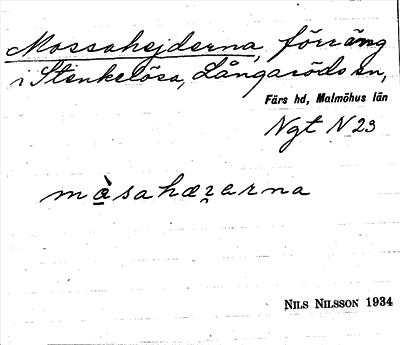 Mossahejderna, förr äng
i Stenkelösa, Långaröds sn,
Färs hd, Malmöhus län
Ngt N 23
mὰsahæʀ̥arna
NILS NILSSON 1934